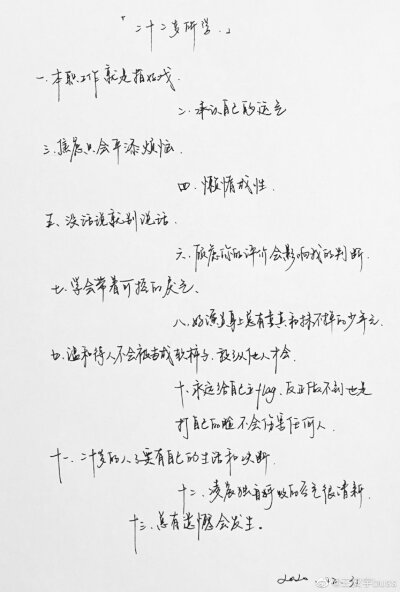 「二十二岁所学。」
一.本职工作就是指好戏.
二.承认自己的运气
三.焦虑只会平添烦恼.
四.懒惰成性.
五、没话说就别说话.
六.顾虑你的评价会影响我的判断.
七.学会带着可控的戾气.
八.好演员身上总有童真和抹不掉的少年气.
九.温和待人不会被当成软柿子.放纵他人才会.
十.永远给自己立flag.反正做不到也是
打自己的脸不会伤害任何人.
十一.二十岁的人了要有自己的生活和决断.
十二.凌晨独自呼吸的空气很清新.
十三.总有遗憾会发生。
2020. 12. 31